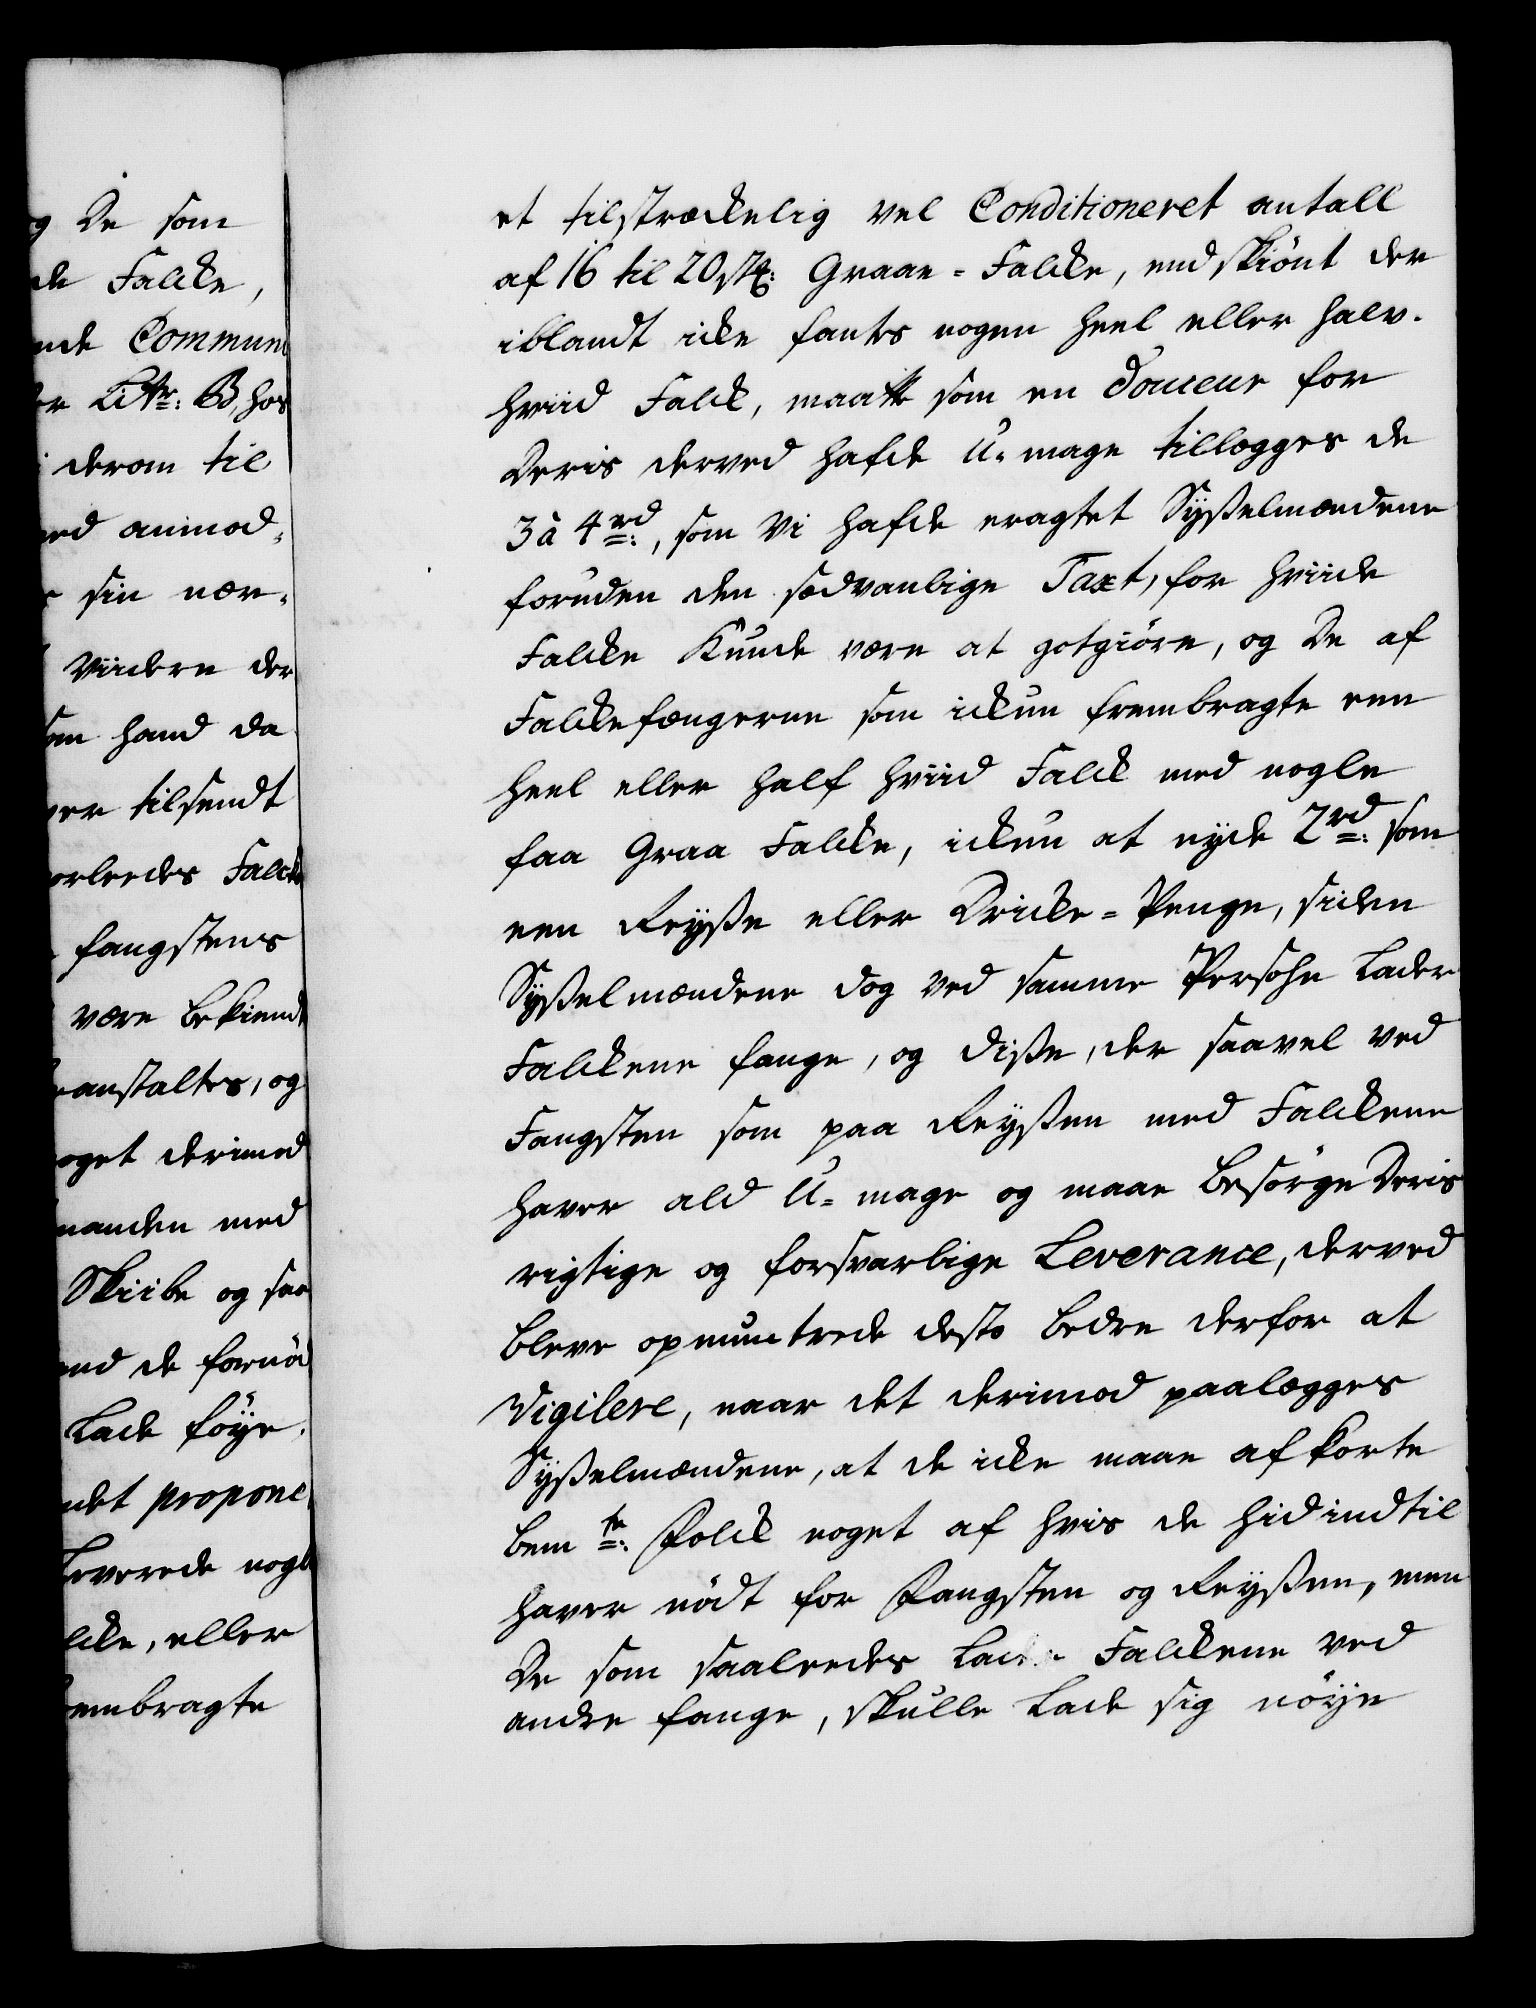 g De som
de Falcke,
nde Commun
er Litr: B, hos
i derom til
med anmod-
r sin nær-
Viidere der
om hand da
ver tilsendt
orleedes Falcke
fangstens
være bekiendt
anstaltes, og
oget derimod
manden med
Skiibe og saa
nd de fornød
Lade føye.
ndet propone
Leverede nogle
lcke, eller
embragte
et tilstræckelig vel Conditioneret antall
af 16 til 20 stk: Graae-Falcke, endskiønt der
iblandt icke fantes nogen heel eller halv-
hviid Falck, maatte som en Douceur for
Deris derved hafde U-mage tillegges de
3 à 4 rd:, som Vi hafde eragtet Sysselmændene
foruden den sædvanlige Taxt, for hviide
Falcke kunde være at gotgiöre, og De af
Falckefængerne som ickun frembragte een
heel eller half hviid Falck med nogle
faa Graa Falcke, ickun at nyde 2 rd: som
een Reysse eller Dricke-Penge, siden
Sysselmændene dog ved samme Persohn Lader
Falckene fange, og disse, der saavel ved
Fangsten som paa Reyssen med Falckene
haver ald U-mage og maae besörge Deris
rigtige og forsvarlige Leverance, derved
bleve opmuntrede desto bedre derfor at
Vigilere, naar det derimod paalegges
Sysselmændene, at de icke maae afkorte
bemte: Folck noget af hvis de hidindtil
haver nödt for Fangsten og Reyssen, men
De som saaleedes Lade Falckene ved
andre fange, skulle Lade sig nöye